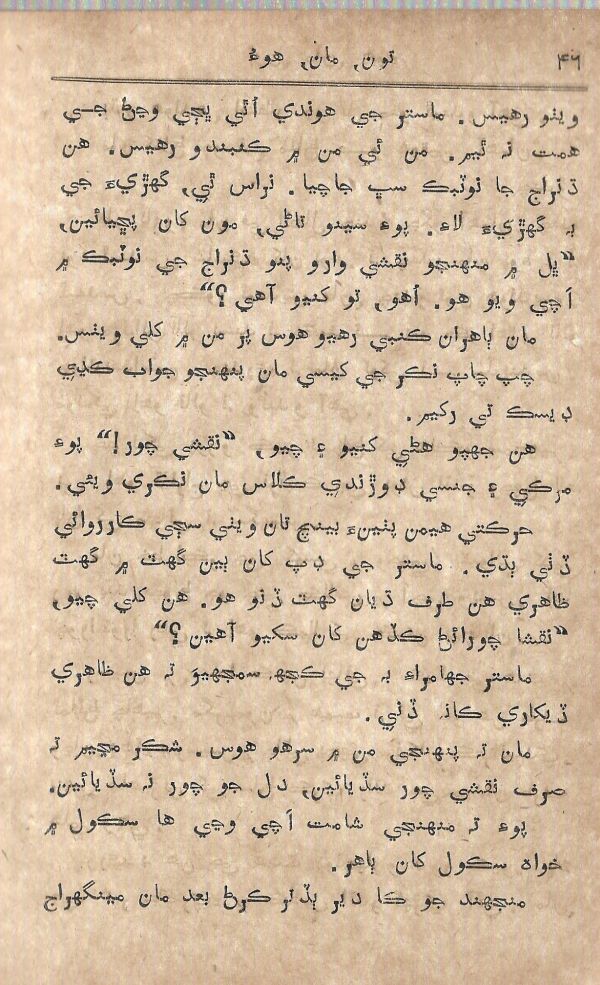 ۴۶
تون, مان, هوءُ
ويٺو رهيس. ماستر جي هوندي اُٿي ڀڄي وڃڻ جي
همت نه ٿيم. من ئي من ۾ ڪنبندو رهيس. هن
ڌنراج جا نوٽبڪ سڀ جاچيا. نراس ٿي, گهڙيءَ جي
به گهڙيءَ لاءِ. پوءِ سينو تاڻي, مون کان پڇيائين,
”ڀل ۾ منهنجو نقشي وارو پنو ڌنراج جي نوٽبڪ ۾
اَچي ويو هو. اُهو, تو کنيو آهي؟“
مان ٻاهران ڪنبي رهيو هوس پر من ۾ کلي ويٺس.
چپ چاپ نڪر جي کيسي مان پنهنجو جواب ڪڍي
ڊيسڪ تي رکيم.
هن جهپو هڻي کنيو ۽ چيو, ”نقشي چور!“ پوءِ
مرڪي ۽ جنسي ڊوڙندي ڪلاس مان نڪري ويئي.
حرڪتي هيمن پٺينءَ بينچ تان ويٺي سڄي ڪارروائي
ڏٺي ٻڌي. ماستر جي ڊپ کان ٻين گهٽ ۾ گهٽ
ظاهري هن طرف ڌيان گهٽ ڏنو هو. هن کلي چيو,
”نقشا چورائڻ ڪڏهن کان سکيو آهين؟“
ماستر جهامراءَ به جي ڪجهہ سمجهيوَ ته هن ظاهري
ڏيکاري ڪانہ ڏني.
مان ته پنهنجي من ۾ سرهو هوس. شڪر مڃيم ته
صرف نقشي چور سڏيائين, دل جو چور نه سڏيائين.
پوءِ ته منهنجي شامت اَچي وڃي ها سڪول ۾
خواه سڪول کان ٻاهر.
منجهند جو ڪا دير ٻڏتر ڪرڻ بعد مان مينگهراج